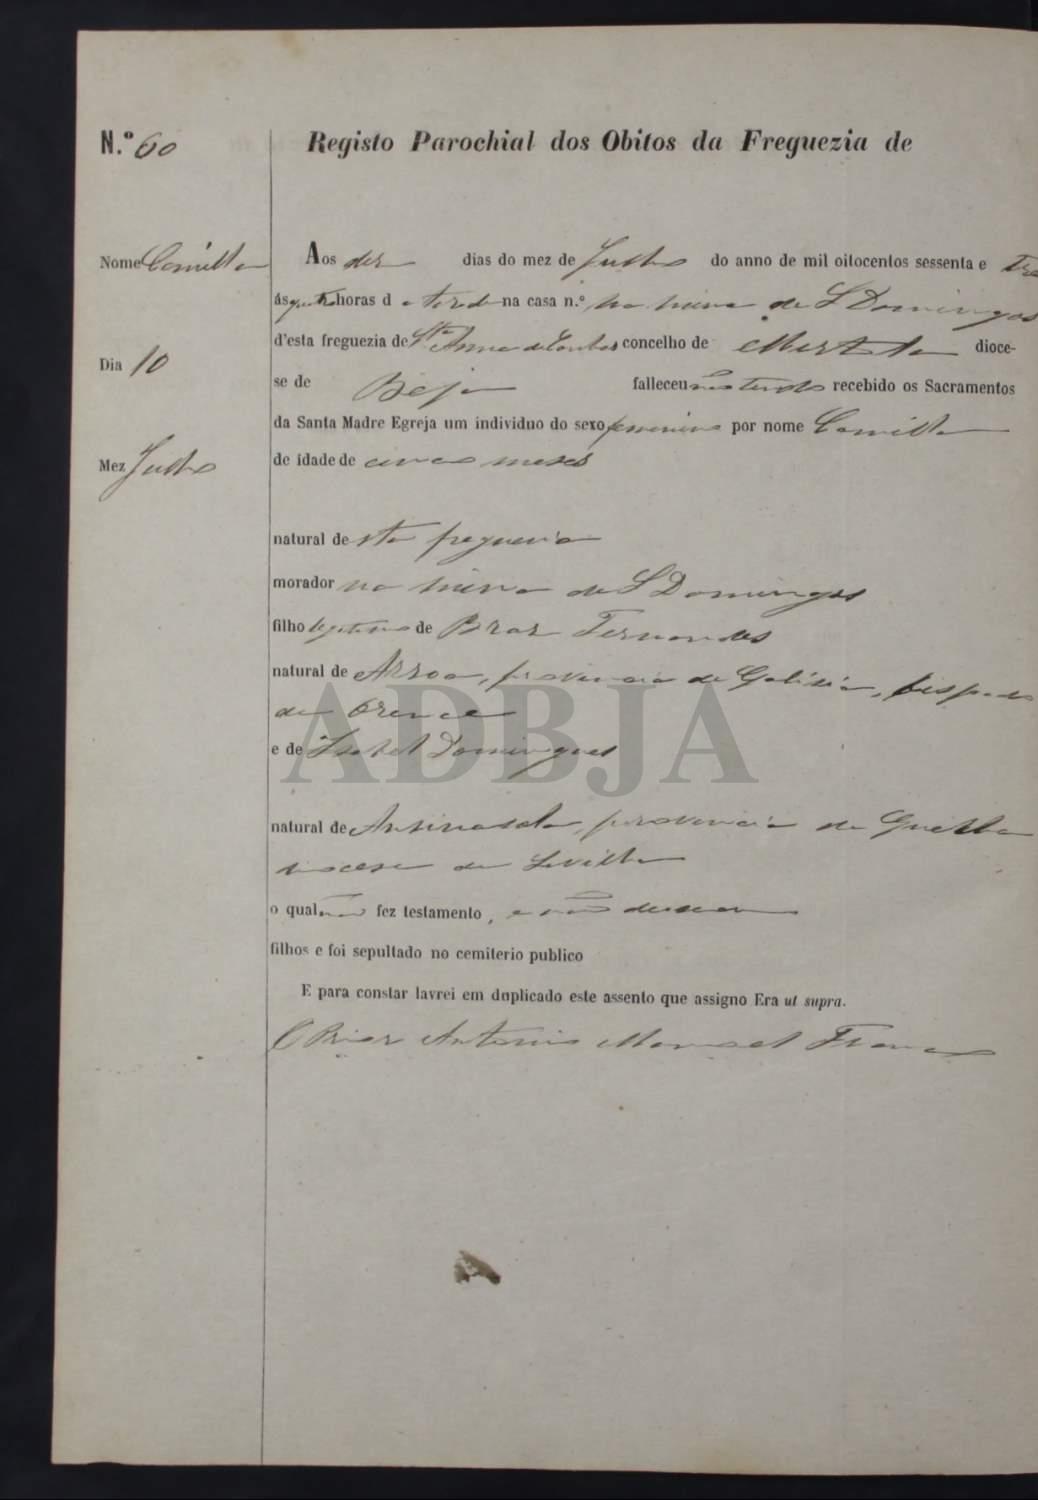 N.º 60
Registo Parochial dos Obitos da Freguezia de
Nome Camilla
Aos dez dias do mez de Julho do anno de mil oitocentos sessenta e tre
ás quatro horas da tarde na casa n.º na mina de S Domingos
d'esta freguezia de Stª Anna de Cambas concelho de Mertola dioce-
Dia 10
se de Beja falleceu não tendo recebido os Sacramentos
da Santa Madre Egreja um individuo do sexo femenino por nome Camilla
Mez Julho
de idade de cinco meses
natural desta freguezia
morador na mina de S Domingos
filho legitimo de Braz Fernandes
natural de , provincia de Galisia, bispado
de Orence
e de Isabel Domingues
natural de , provincia de Guelba
diocese de Sevilha
o qual não fez testamento, e não deixou
filhos e foi sepultado no cemiterio publico
E para constar lavrei em duplicado este assento que assigno Era ut supra.
O Prior Antonio Manoel Franco
ADBJA